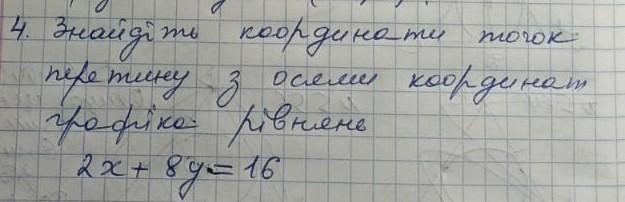 4. Знайдіть координати точок
перетину з осями координат
графіка рівнянь
2x + 8y = 16